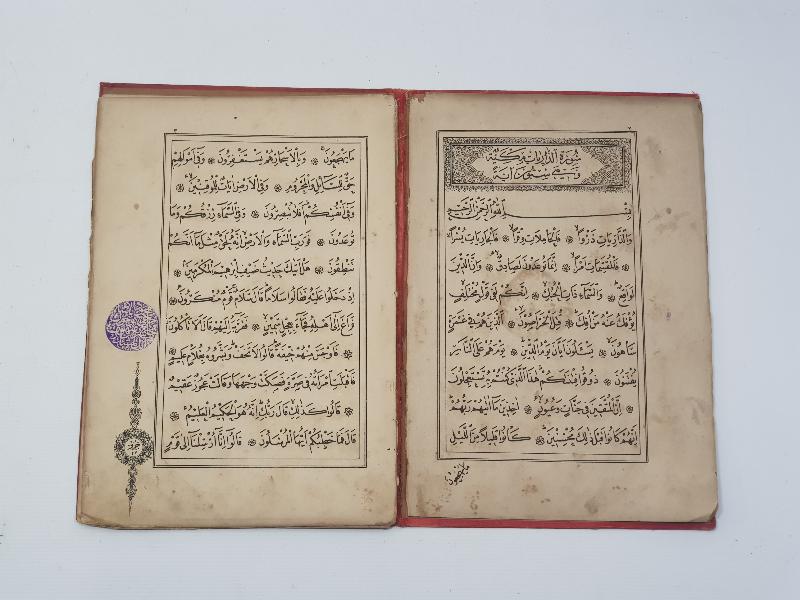 ٢
سورة الذاريات مكية
وهي ستون آية
بسم الله الرحمن الرحيم
والذاريات ذروا ۞ فالحاملات وقرا ۞ فالجاريات يسرا
۞ فالمقسمات امرا ۞ انما توعدون لصادق ۞ وان الدين
لواقع ۞ والسماء ذات الحبك ۞ انكم لفي قول مختلف
يؤفك عنه من افك ۞ قتل الخراصون ۞ الذين هم في غمرة
ساهون ۞ يسئلون ايان يوم الدين ۞ يوم هم على النار
يفتنون ۞ ذوقوا فتنتكم هذا الذي كنتم به تستعجلون
۞ ان المتقين في جنات وعيون ۞ اخذين ما اتيهم ربهم
انهم كانوا قبل ذلك محسنين ۞ كانوا قليلا من الليل
ما يهجعون
٣
ما يهجعون ۞ وبالاسحار هم يستغفرون ۞ وفي اموالهم
حق للسائل والمحروم ۞ وفي الارض ايات للموقنين ۞
وفي انفسكم افلا تبصرون ۞ وفي السماء رزقكم وما
توعدون ۞ فورب السماء والارض انه لحق مثل ما انكم
تنطقون ۞ هل اتيك حديث ضيف ابرهيم المكرمين ۞
اذ دخلوا عليه فقالوا سلاما قال سلام قوم منكرون ۞
فراغ الى اهله فجاء بعجل سمين ۞ فقربه اليهم قال الا تأكلون
۞ فاوجس منهم خيفة قالوا لا تخف وبشروه بغلام عليم ۞
فاقبلت امرأته في صرة فصكت وجهها وقالت عجوز عقيم ۞
قالوا كذلك قال ربك انه هو الحكيم العليم ۞
قال فما خطبكم ايها المرسلون ۞ قالوا انا ارسلنا الى قوم